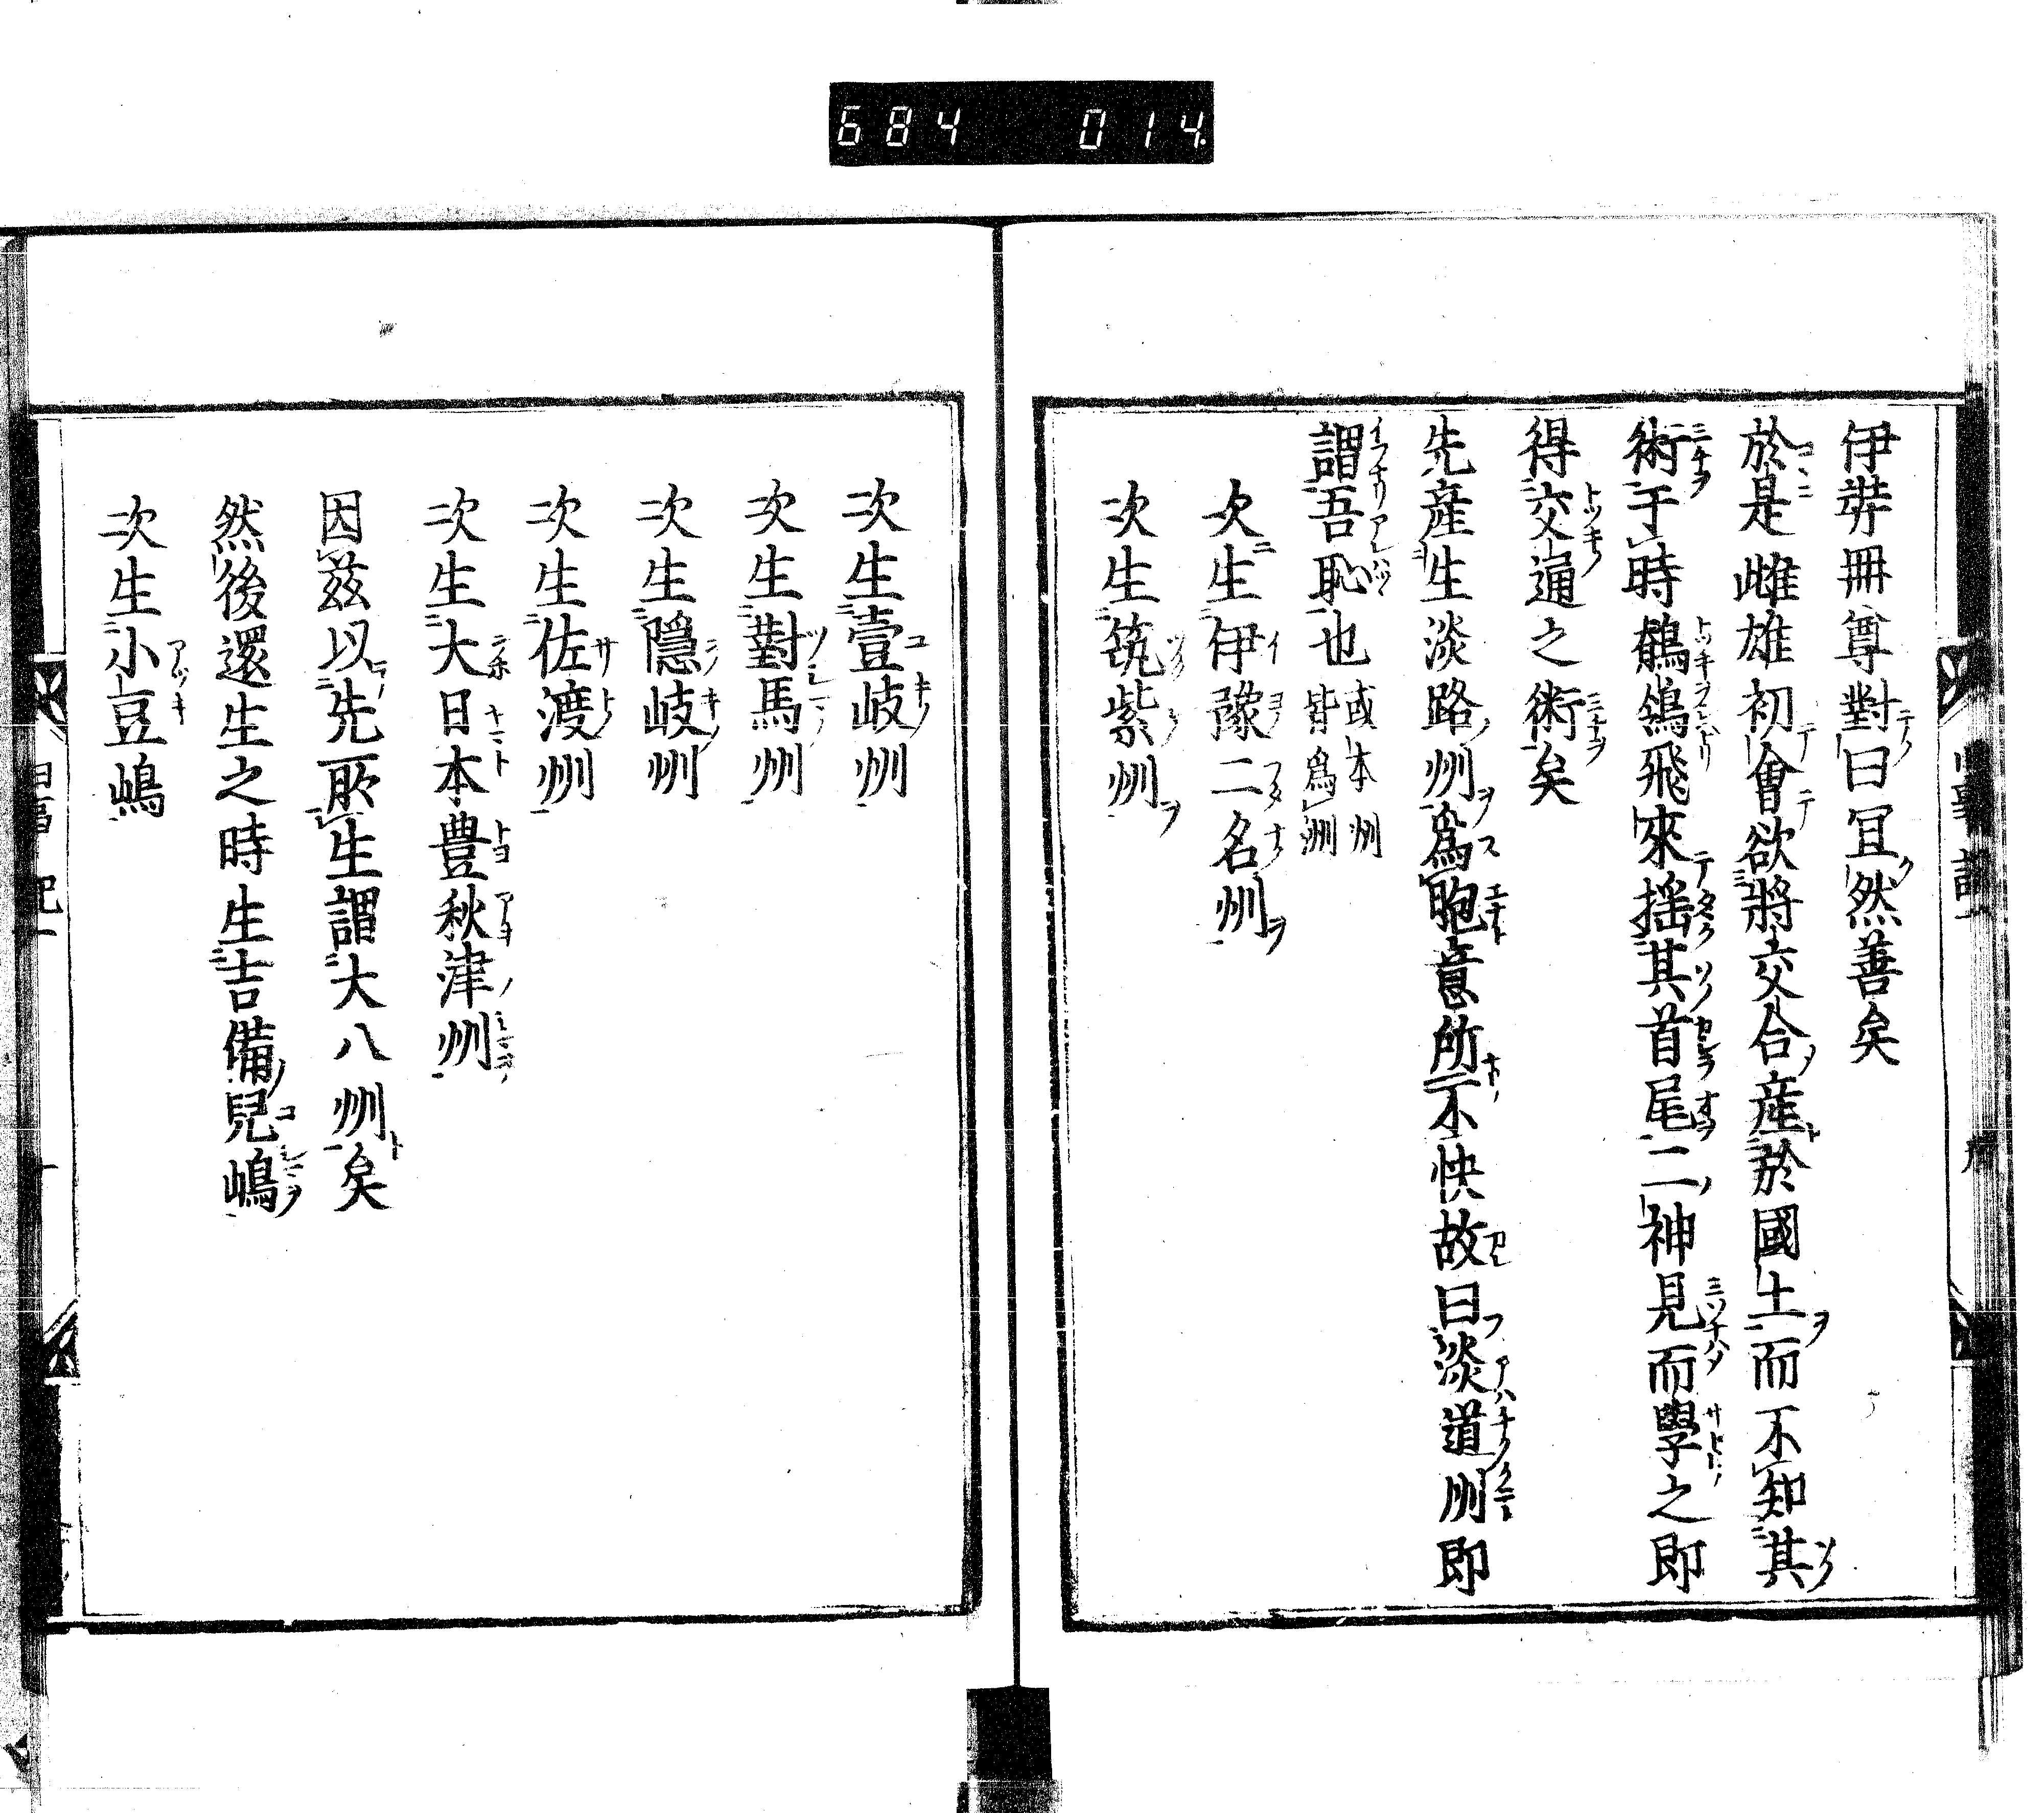 684 014
伊弉冊尊對曰冝然善矣
於是雌雄初會欲將交合產於國土而不知其
術于時鶺鴒飛來揺其首尾二神見而學之即
得交通之術矣
先産生淡路州爲胞意所不快故曰淡道州即
謂吾恥也或本州皆爲洲
次生伊豫二名州
次生筑紫州
次生壹岐州
次生對馬州
次生隱岐州
次生佐渡州
次生大日本豊秋津州
因茲以先所生謂大八州矣
然後還生之時生吉備兒嶋
次生小豆嶋